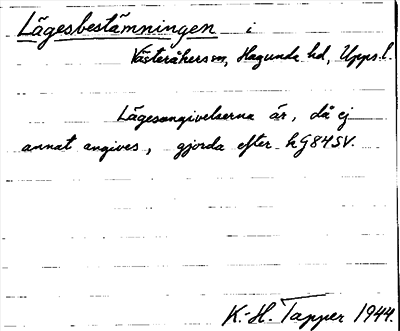 Lägesbestämningen i
Västeråkers sn, Hagunda hd, Upps. l.
Lägesangivelserna är, då ej
annat angives, gjorda efter hG84SV.
K.-H. Tapper 1944.